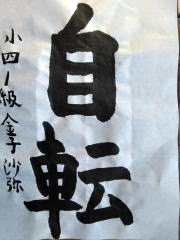 自転
小四ノ級金子沙弥